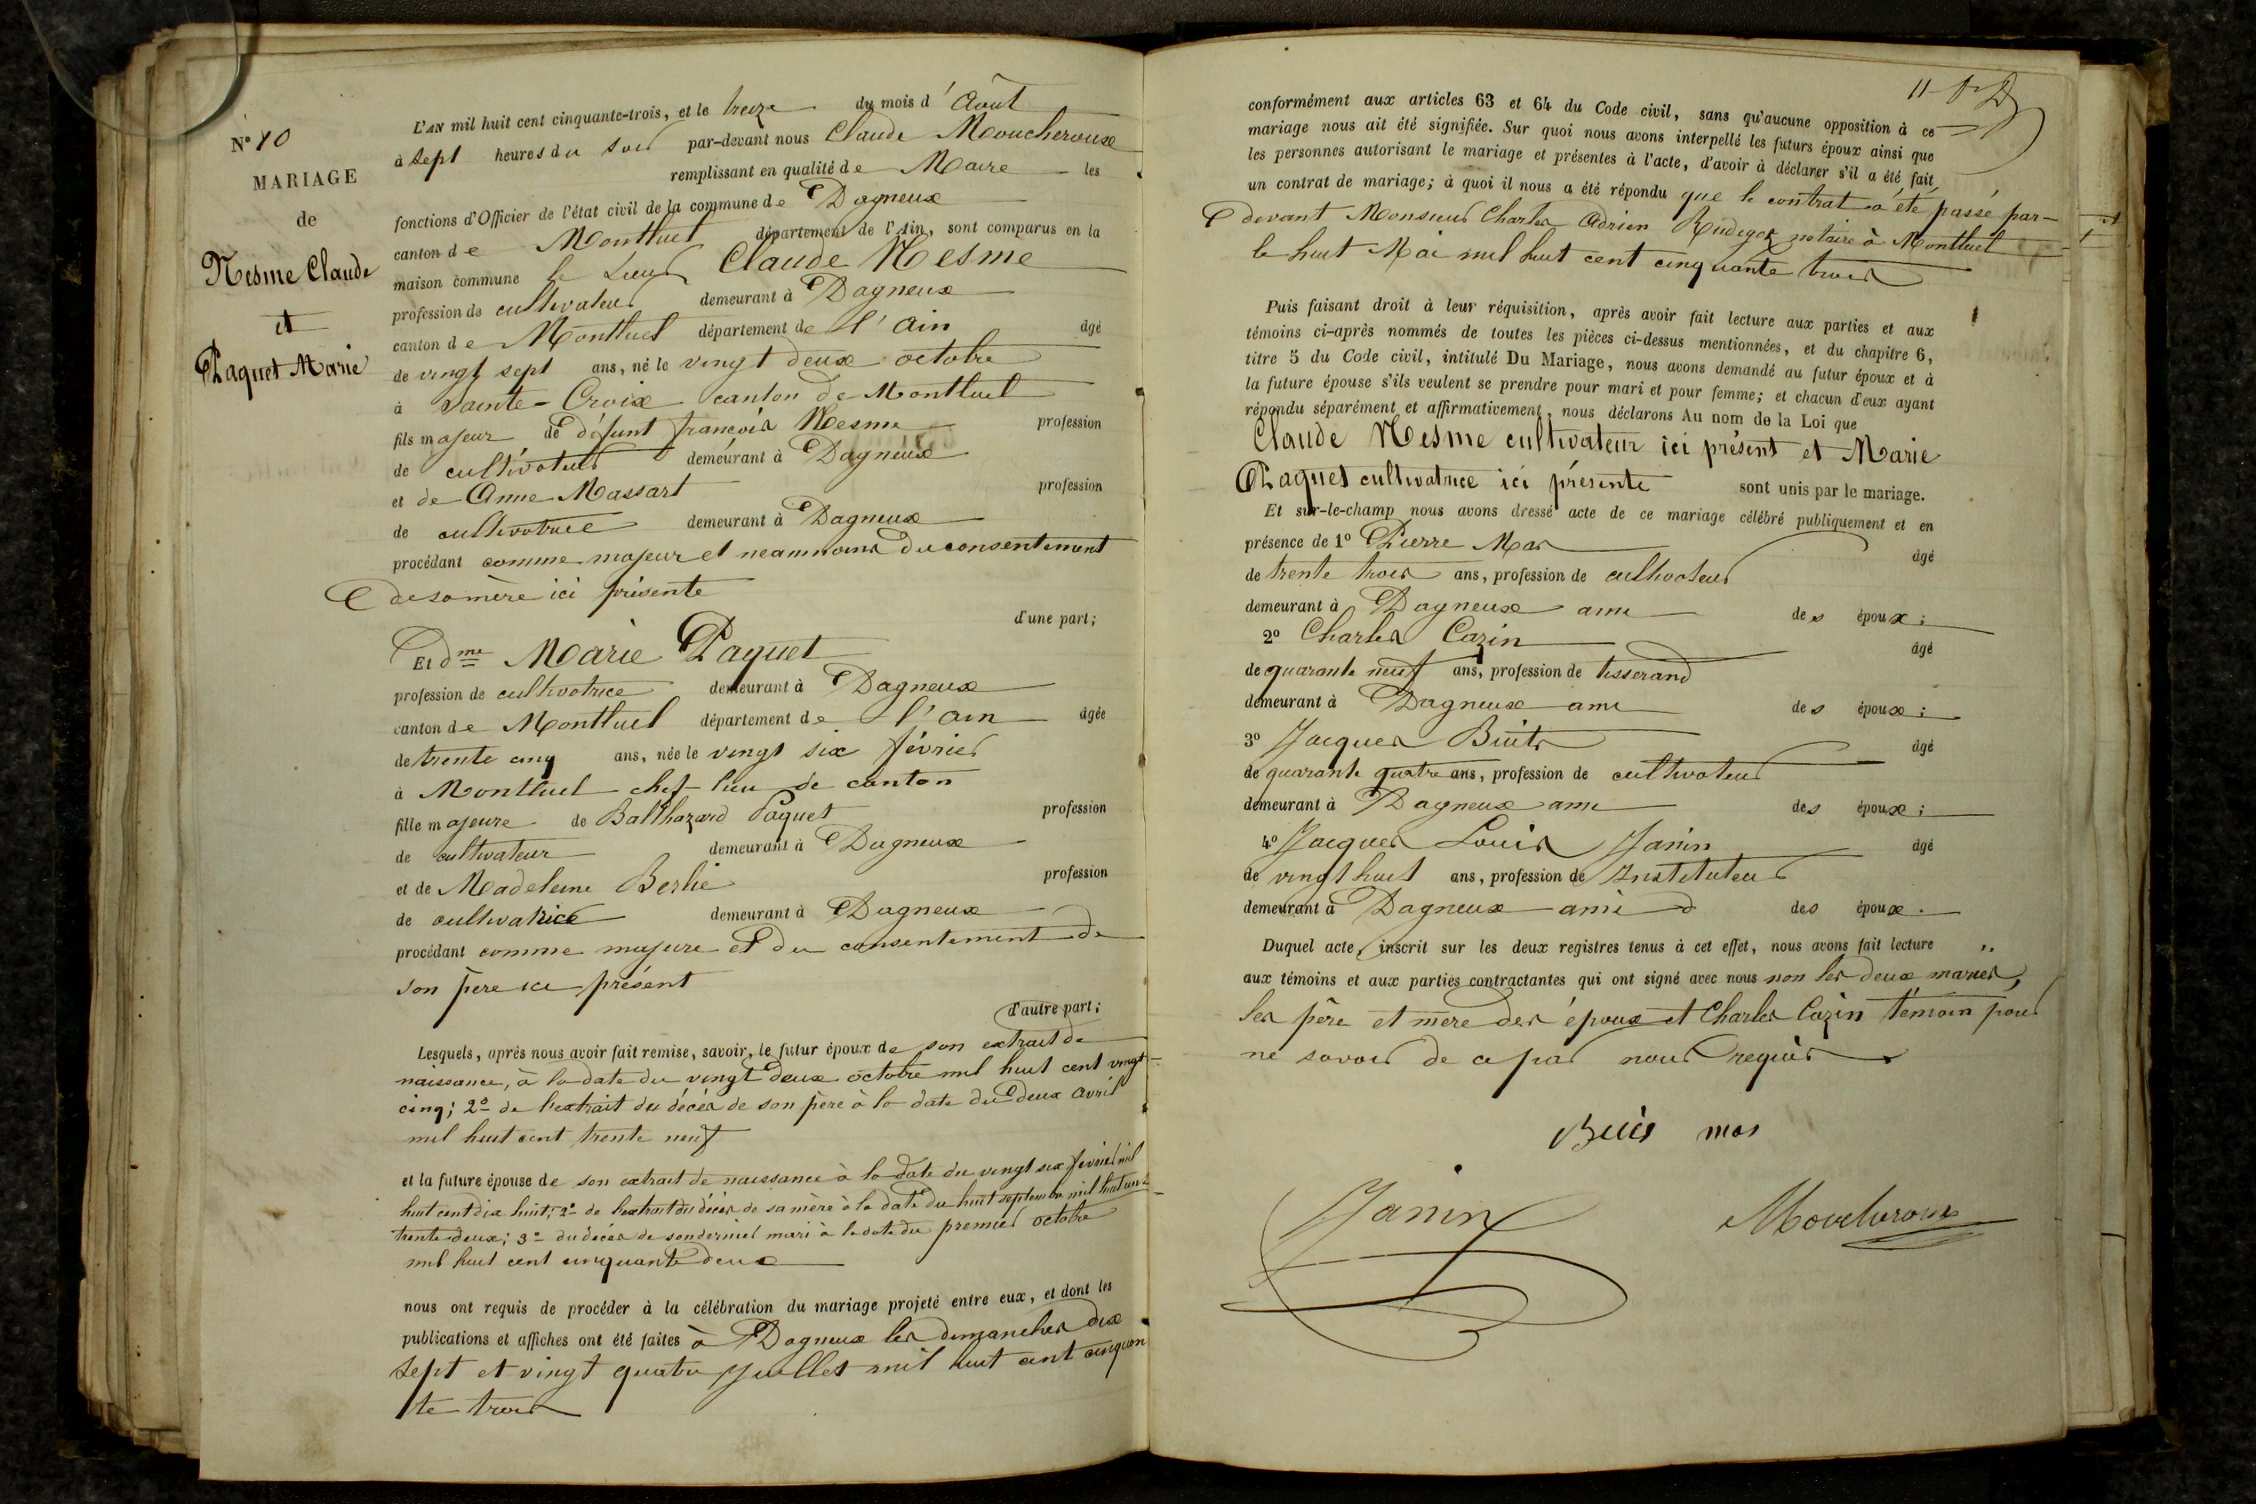 N° 10
MARIAGE
de
Nesme Claude
et
Paquet Marie
L'AN mil huit cent cinquante-trois, et le treize du mois d'Août
à sept heures du soir par-devant nous Claude Moucheroux
remplissant en qualité de Maire les
fonctions d'Officier de l'état civil de la commune de Dagneux
canton de Montluel département de l'Ain, sont comparus en la
maison commune le Sieur Claude Nesme
profession de cultivateur demeurant à Dagneux
canton de Montluel département de l'Ain âgé
de vingt sept ans, né le vingt deux octobre
à Sainte-Croix canton de Montluel
fils majeur de défunt françois Nesme profession
de cultivateur demeurant à Dagneux
et de Anne Massart profession
de cultivatrice demeurant à Dagneux
procédant comme majeur et neanmoins du consentement
de sa mère ici présente
d'une part;
Et dme Marie Paquet
profession de cultivatrice demeurant à Dagneux
canton de Montluel département de l'Ain âgée
de trente cinq ans, née le vingt six février
à Montluel chef-lieu de canton
fille majeure de Balthazard Paquet profession
de cultivateur demeurant à Dagneux
et de Madeleine Berlié profession
de cultivatrice demeurant à Dagneux
procédant comme majeure et du consentement de
son père ici présent
d'autre part;
Lesquels, après nous avoir fait remise, savoir, le futur époux de son extrait de
naissance, à la date du vingt deux octobre mil huit cent vingt-
cinq; 2° de l'extrait du décès de son père à la date du deux avril
mil huit cent trente neuf
et la future épouse de son extrait de naissance à la date du vingt six février mil
huit cent dix huit; 2° de l'extrait du décès de sa mère à la date du huit septembre mil huit cent
trente deux; 3° du décès de son dernier mari à la date du premier octobre
mil huit cent cinquante deux
nous ont requis de procéder à la célébration du mariage projeté entre eux, et dont les
publications et affiches ont été faites à Dagneux les dimanches dix
sept et vingt quatre Juillet mil huit cent cinquan
te trois
11
conformément aux articles 63 et 64 du Code civil, sans qu'aucune opposition à ce
mariage nous ait été signifiée. Sur quoi nous avons interpellé les futurs époux ainsi que
les personnes autorisant le mariage et présentes à l'acte, d'avoir à déclarer s'il a été fait
un contrat de mariage; à quoi il nous a été répondu que le contrat a été passé par-
devant Monsieur Charles Adrien Rudigoz notaire à Montluel
le huit Mai mil huit cent cinquante trois
Puis faisant droit à leur réquisition, après avoir fait lecture aux parties et aux
témoins ci-après nommés de toutes les pièces ci-dessus mentionnées, et du chapitre 6,
titre 5 du Code civil, intitulé Du Mariage, nous avons demandé au futur époux et à
la future épouse s'ils veulent se prendre pour mari et pour femme; et chacun d'eux ayant
répondu séparément et affirmativement, nous déclarons Au nom de la Loi que
Claude Nesme cultivateur ici présent et Marie
Paquet cultivatrice ici présente sont unis par le mariage.
Et sur-le-champ nous avons dressé acte de ce mariage célébré publiquement et en
présence de 1° Pierre Mas âgé
de trente trois ans, profession de cultivateur
demeurant à Dagneux ami des époux;
2° Charles Cazin âgé
de quarante neuf ans, profession de tisserand
demeurant à Dagneux ami des époux;
3° Jacques Buits âgé
de quarante quatre ans, profession de cultivateur
demeurant à Dagneux ami des époux;
4° Jacques Louis Janin âgé
de vingt huit ans, profession de Instituteur
demeurant à Dagneux ami des époux.
Duquel acte, inscrit sur les deux registres tenus à cet effet, nous avons fait lecture
aux témoins et aux parties contractantes qui ont signé avec nous non les deux mariés,
les père et mère des époux et Charles Cazin témoin pour
ne savoir de ce par nous requis
mas
Janin
Moucheroux